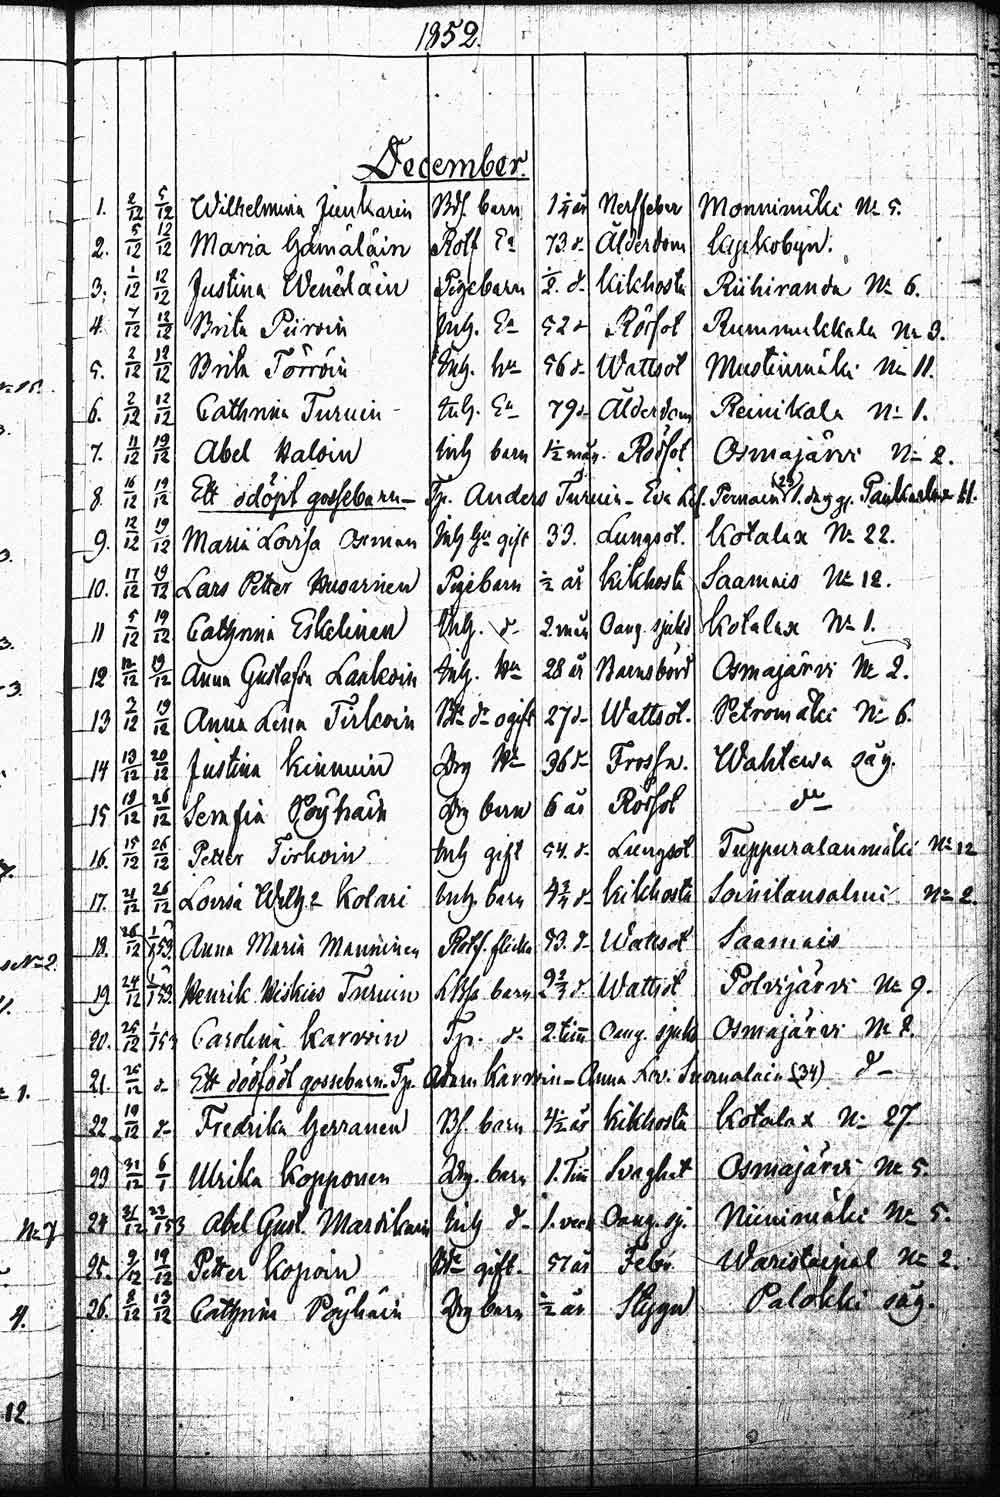 1852.
December.
1. 2/12 5/12 Wilhelmina Junkarin Bd. barn 1 1/4 år Nerffeber Monnimäki No 5.
2. 5/12 12/12 Maria Hämäläin Rotf Ea 73 d- Ålderdom Kyrkobyn.
3. 1/12 12/12 Justina Wenäläin Pigebarn 1/2 d- Kikhosta Riihiranda No 6.
4. 7/12 12/12 Brita Piiroin Inh. Ea 52 d- Rötsot Rummukkala No 3.
5. 2/12 12/12 Brita Törröin Inh. hu 56 d- Wattsot Mustinmäki No 11.
6. 2/12 12/12 Cathrina Turuin Inh. Ea 79 d- Ålderdom Reinikala No 1.
7. 11/12 19/12 Abel Haloin Inh barn 1 1/2 mån. Rötsot Osmajärvi No 2.
8. 16/12 19/12 Ett dödföt gossebarn - Tp. Anders Turuin - Eva
9. 12/12 19/12 Maria Lovisa Inh gift 33. Lungsot. Kotalax No 22.
10. 17/12 19/12 Lars Petter Pigebarn 1/2 år Kikhosta Saamais No 12.
11 5/12 19/12 Cathrina Eskelinen Inh. d- 2. mån Oang. sjukd Kotalax No 1.
12 12/12 19/12 Anna Gustafva Laakoin Inh. Hu 28 år Barnsbörd Osmajärvi No 2.
13 2/12 19/12 Anna Lena Tirkoin ogift 27 d- Wattsot. Petromäki No 6.
14 13/12 20/12 Justina Kinnuin Drg Hu 36 d- Frossa. Wahtewa säg.
15 19/12 26/12 Serafia Pöyhäin Drg barn 6 år Rötsot do
16. 15/12 26/12 Petter Tirkoin Inh gift 54. d- Lungsot Tuppuralanmäki No 12
17. 21/12 26/12 Lovisa Kolari Inh. barn 4 3/4 d- Kikhosta Soinilansalmi No 2.
18. 26/12 1/1 53. Anna Maria Manninen Rotf. flicka 53. d- Wattsot Saamais
19 24/12 1/1 53. Henrik Hiskias Turuin barn 9 2/4 d- Wattsot Polvijärvi No 9.
20. 25/12 1/1 53 Carolina Karvoin Tp. d- 2. tim Oang. sjukd Osmajärvi No 8.
21. 25/12 d- Ett dödfödt gossebarn. Tp. Adam Karvoin - Anna Lov. Suomalain (34) d-
22 19/12 d- Fredrika Herranen Bd. barn 4 1/2 år Kikhosta Kotalax No 27.
23 31/12 6/1 Ulrika Kopponen Drg. barn 1. Tim Svaghet Osmajärvi No 5.
24 31/12 23/1 53 Abel Gust. Martikain Inh d- 1. veck Oang. sj. Niinimäki No 5.
25. 9/12 19/12 Petter Kopoin gift. 51 år Feber Waristaipal No 2.
26. 8/12 13/12 Cathrina Pöyhäin Drg barn 1/2 år Stygn Palokki säg.
No 7
4.
12.